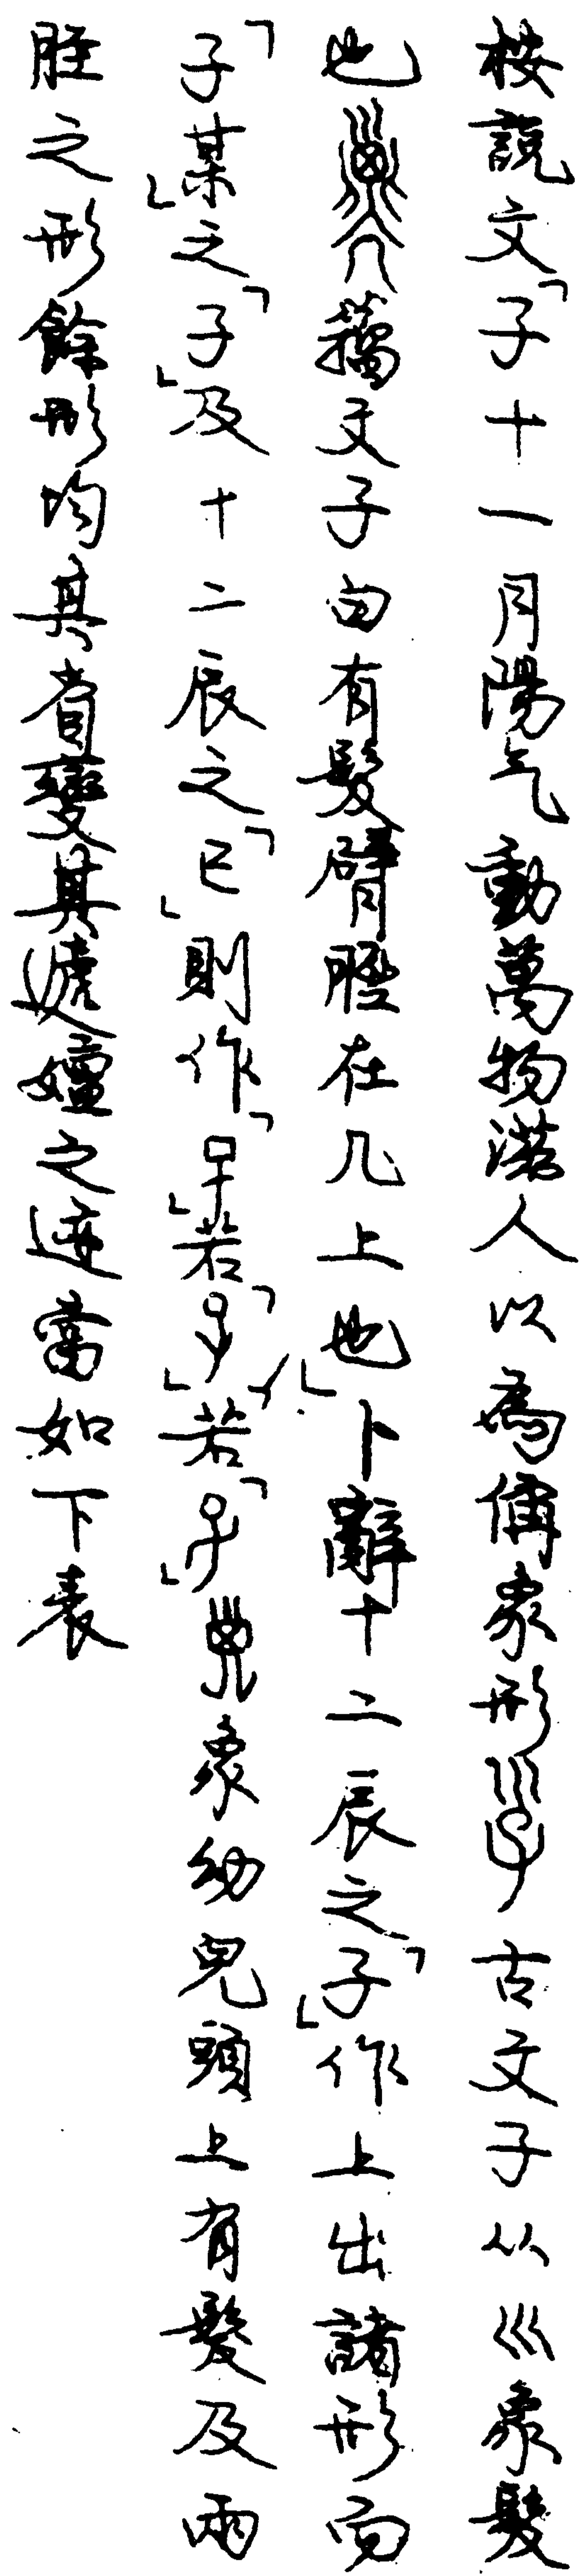 桉說文「子十一月陽气動萬物滋人以為偁象形𡿹古文子从巛象髮
也𢀇籀文子囟有髮臂脛在几上也」卜辭十二辰之「子」作上出諸形而
「子某」之「子」及十二辰之「巳」則作「」若「」若「」象幼兒頭上有髮及兩
脛之形餘形均其省變其遞嬗之迹當如下表